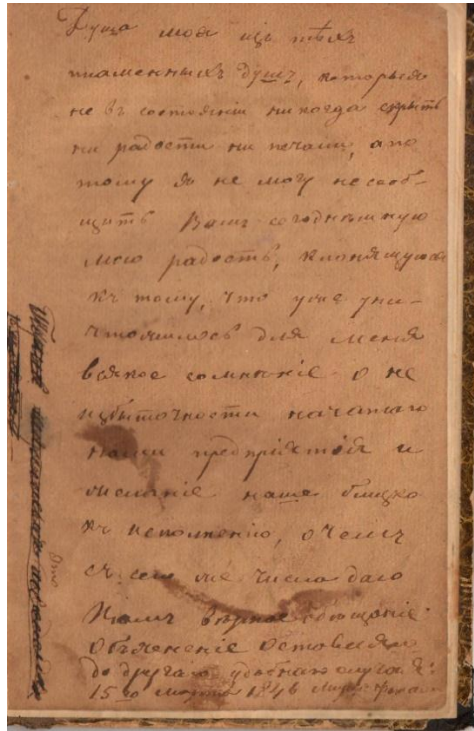 Душа моя изъ тѣхъ
пламенныхъ душъ, которыя
не въ состояніи никогда скрыть
ни радости ни печали, а по
тому я не могу не сооб-
щить Вамъ сегоднѣшную
мою радость, клонящуюся
къ тому, что уже уни-
чтожилось для меня
всякое сомнѣніе о не
избыточности начатаго
нами предпріятія и
желаніе наше близко
къ исполненію, о чемъ
съ сего же числа даю
Вамъ вѣрное обѣщаніе
Объясненіе оставляю
до другаго удобнаго случая:
15го Марта 1846